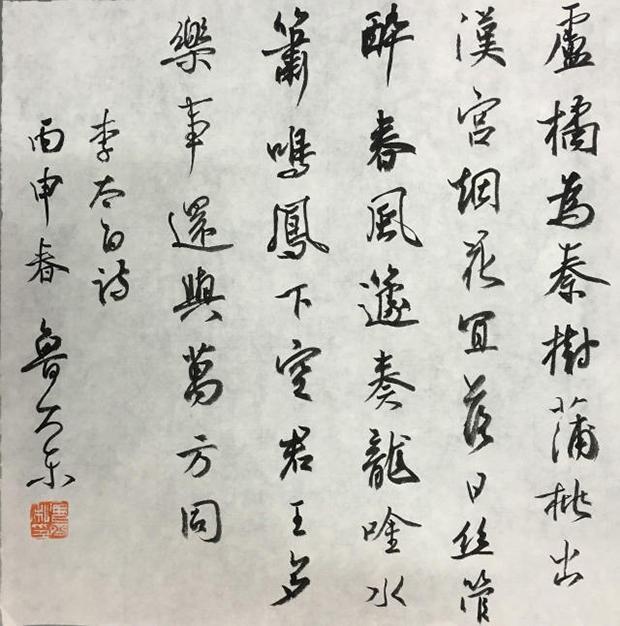 盧橘為秦樹蒲桃出
漢宮烟花宜落日絲管
醉春風篴奏龍唫水
簫鳴鳳下空君王多
樂事還與萬方同
李太白詩
丙申春魯大東